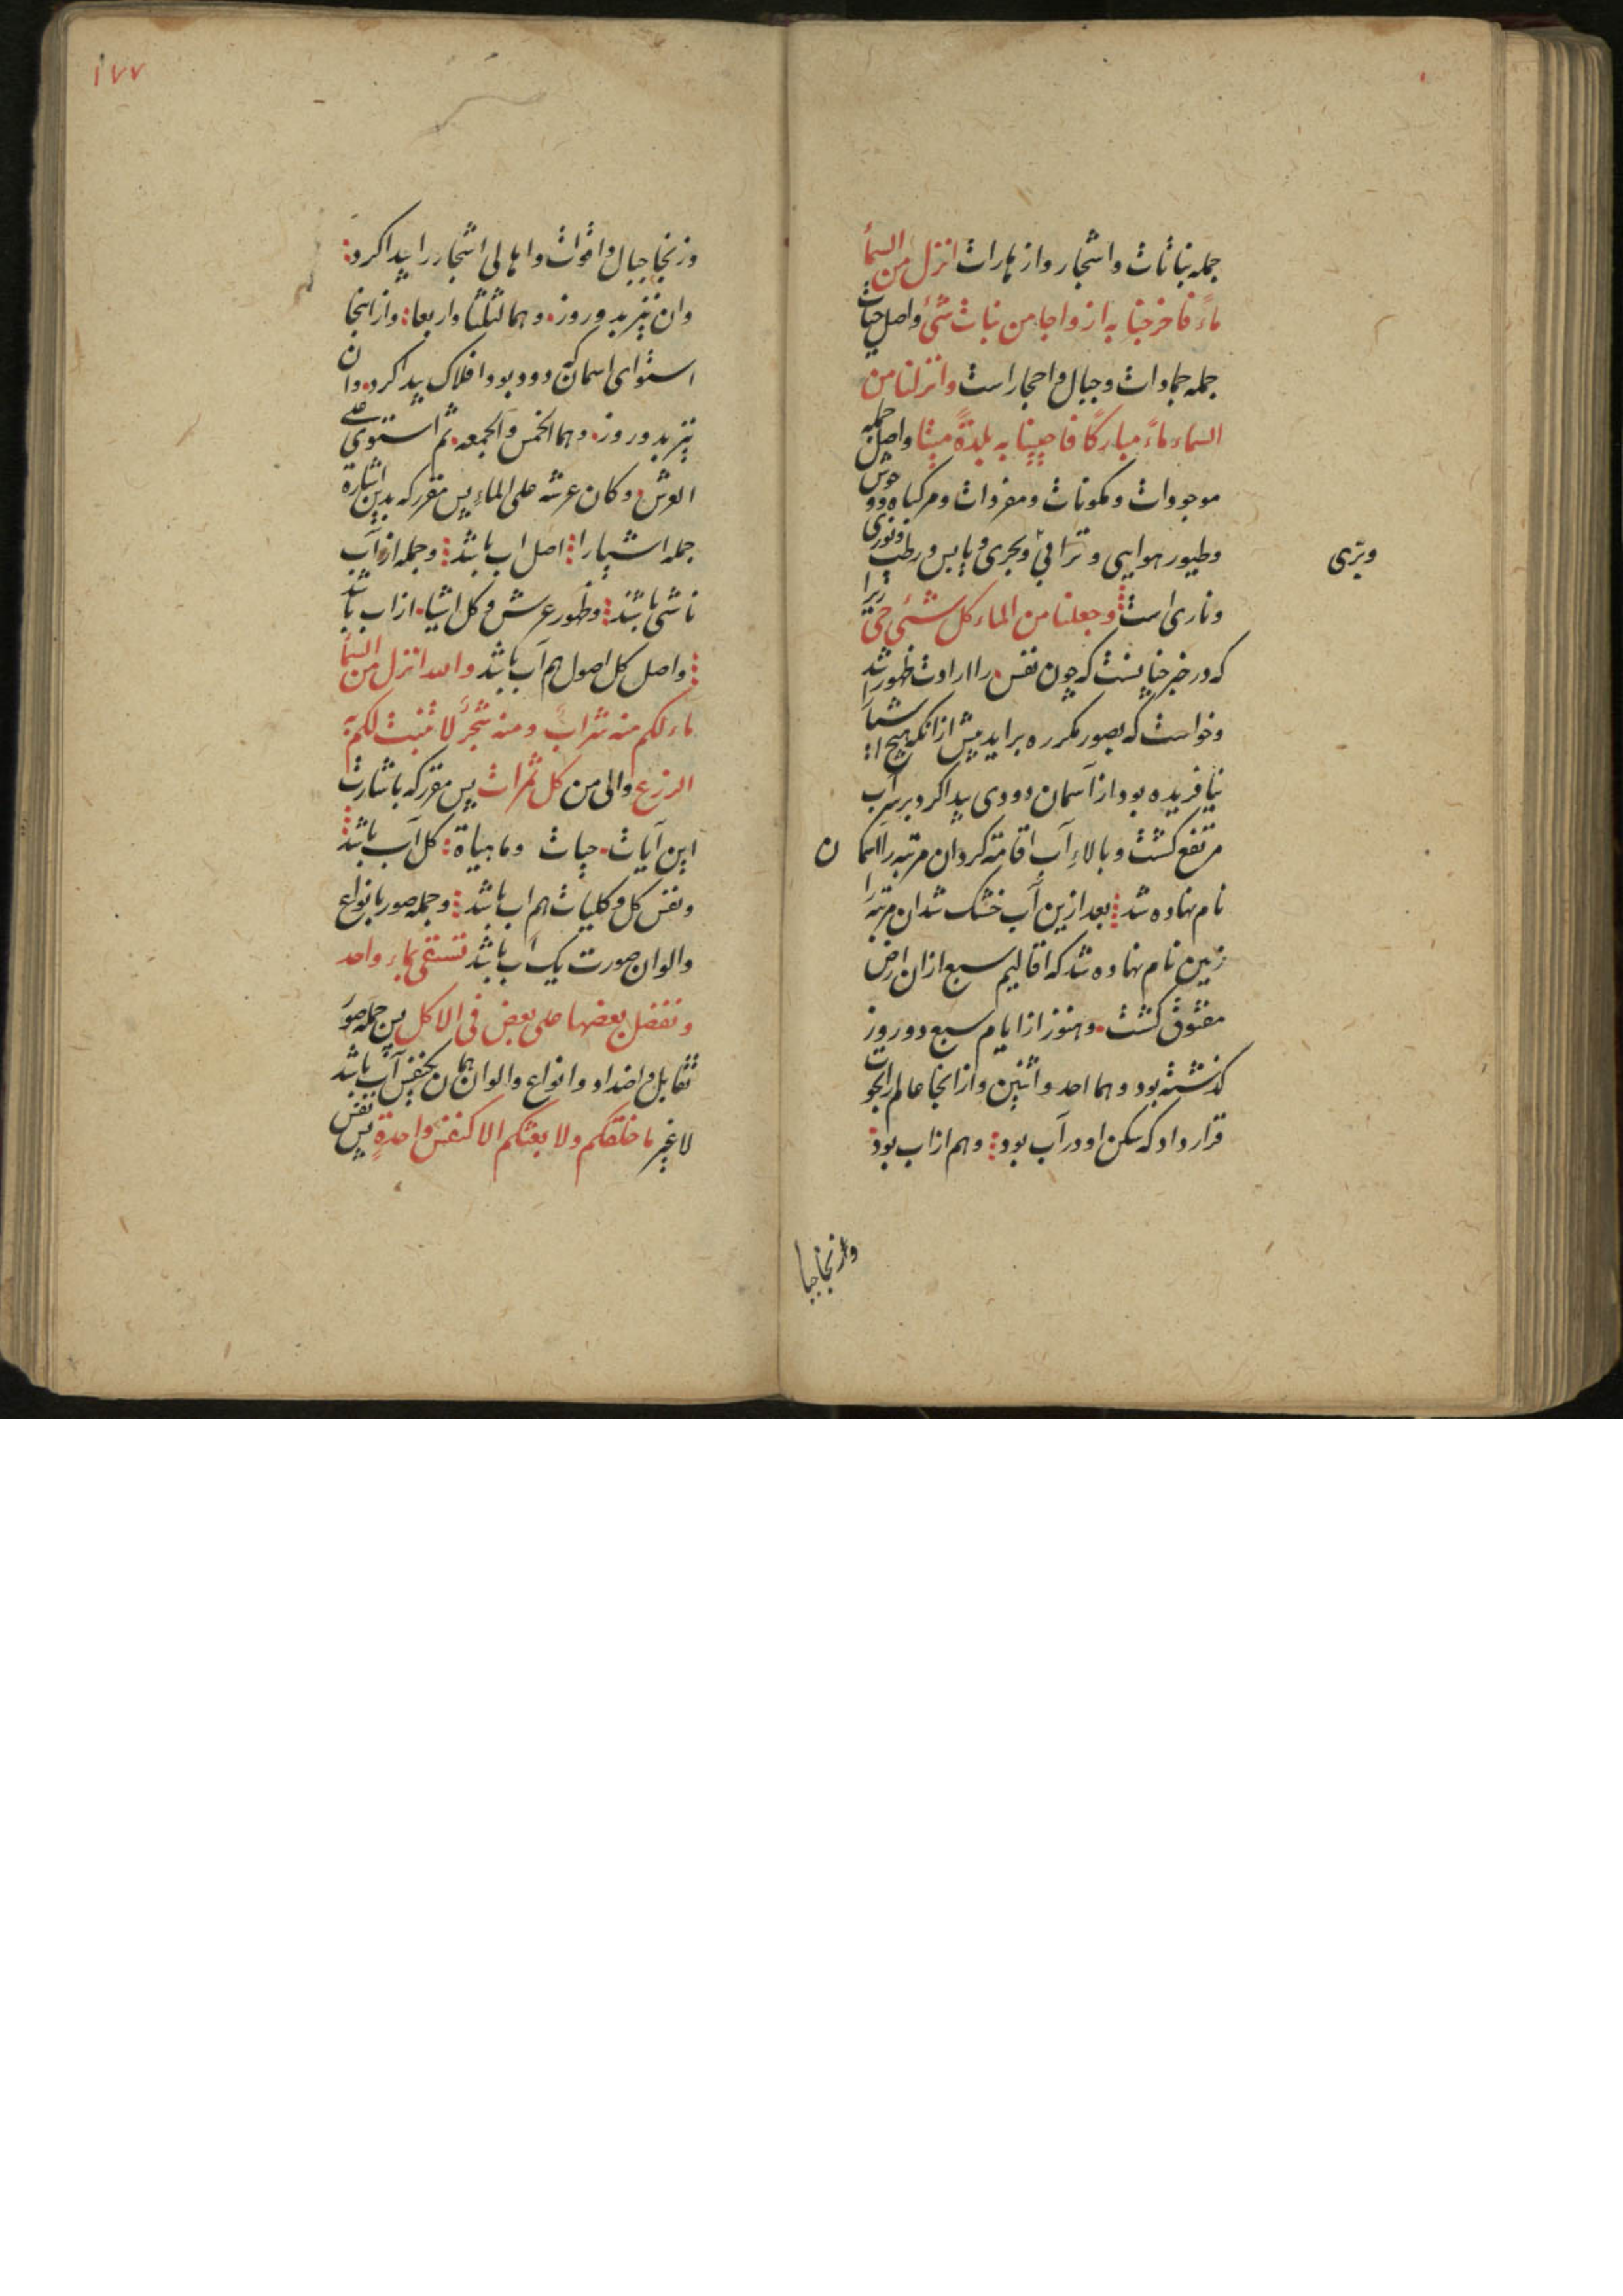 جمله نباتات و اشجار و ازهارات انزل من السمأ
ماءً فاخرجنا به ازواجا من نبات شیٔ و اصل حیات
جمله جمادات و جبال و احجار است و انزلنا من
السماء ماءً مبارکًا فاحیینا به بلدةً میتا و اصل جمله
موجودات و مکونات و مفردات و مرکبات و وحوش
و طیور هوایی و ترابی و بحری و یابس و رطب و نوری
وبرّی
و ناری است و جعلنا من الماء کل شیٔ حی زیرا
که در خبر چنانست که چون نفس را ارادت ظهور شد
و خواست که بصور مکرره براید پیش از آنکه هیچ اشیاء
نیافریده بود از آسمان دودی پیدا کرد بر سر آب
مرتفع کشت و بالاءِ آب اقامة کرد ان مرتبه را السما
ن
نام نهاده شد بعد ازین آب خشک شد ان مرتبه را
زمین نام نهاده شد که اقالیم سبع از ان ارض
مفتوق کشت و هنوز از ایام سبع دو روز
کذشته بود و هما احد و اثنین و از انجا عالم را بحوت
قرار داد که سکن او در آب بود و هم از اب بود
وازنجا جبا
١٧٧
وزنجا جبال و اقوات و اهالی اشجار را پیدا کرد
و ان نیز بدو روز و هما ثلثا و اربعا و از انجا
استوای اسمان که دود بود افلاک پیدا کرد و ان
نیز بدو روز و هما الخمس و الجمعه ثم استوی علی
العرش و کان عرشه علی الماءِ پس مقرر که بدین اشارة
جمله اشیارا اصل اب باشد و جمله از آب
ناشی باشند و ظهور عرش و کل اشیا از اب باشد
و اصل کل اصول هم آب باشد و الله انزل من السمأ
ماء لکم منه شرابً و منه شجرً لا منبت لکم به
الزرع و الی من کل ثمرات پس مقرر که باشارت
این آیات حیات و ماهیاة کل آب باشد
و نفس کل و کلیات هم اب باشد و جمله صور بانواع
و الوان صورت یک آب باشد تسقی بماء واحد
و نفضل بعضها علی بعض فی الاکل پس جمله صور
تقابل و اضداد و انواع و الوان همان یک نفس آب باشد
لا غیر ما خلقکم ولا بعثکم الا کنفس واحدةٍ پس نفس